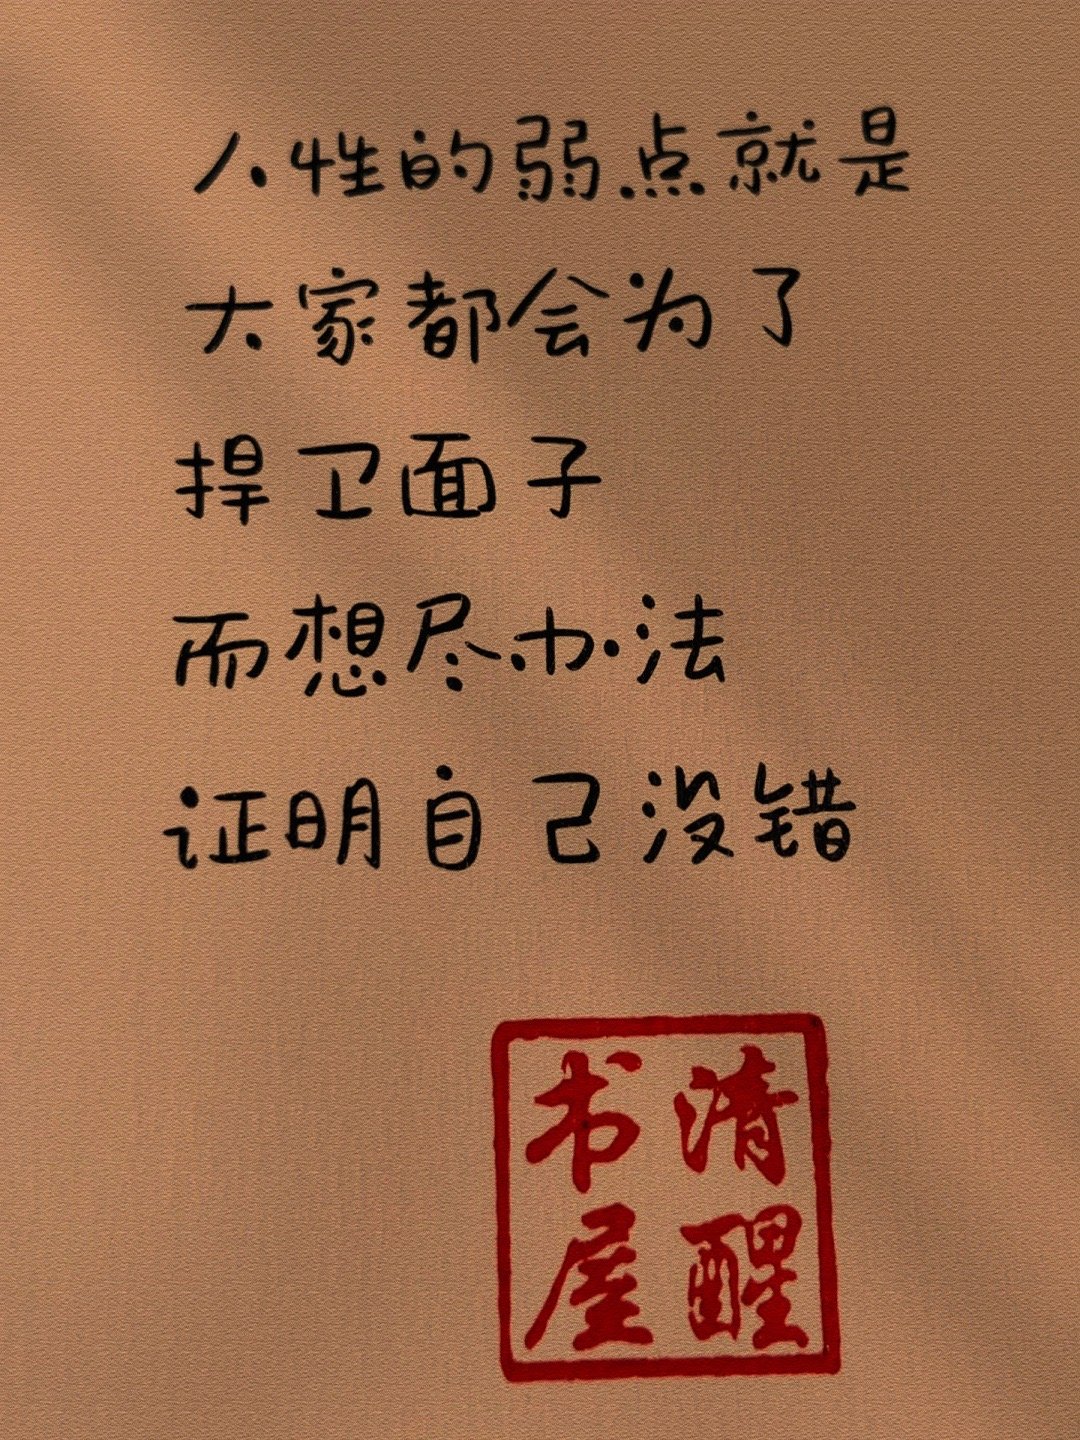 人性的弱点就是
大家都会为了
捍卫面子
而想尽办法
证明自己没错
清醒
书屋